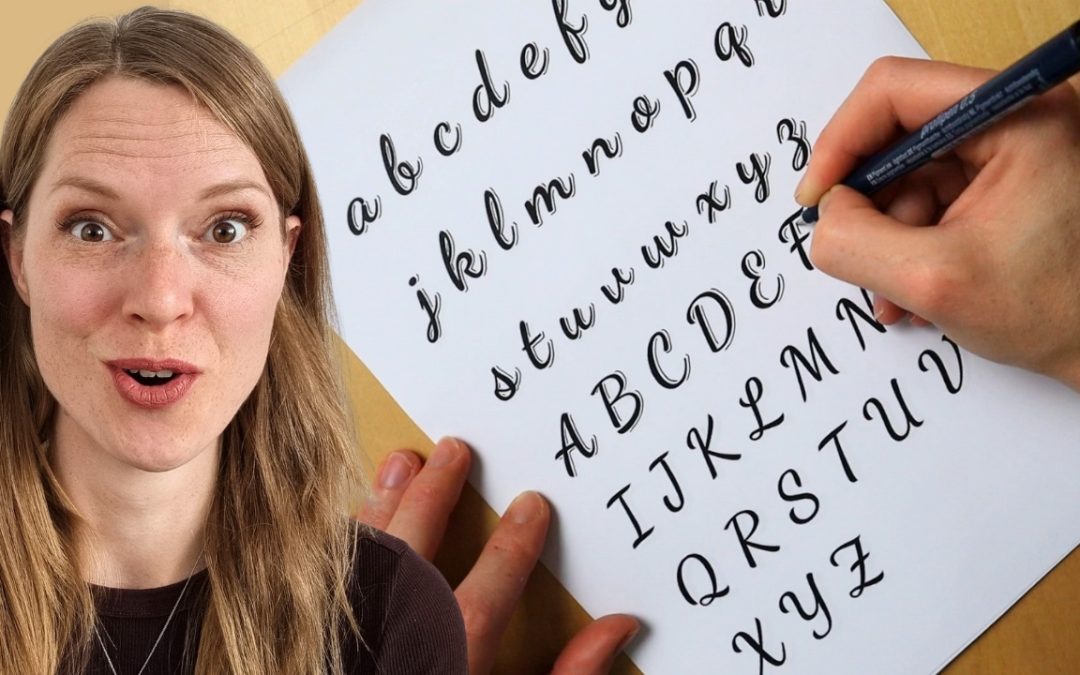 a b c d e f g
j k l m n o p q r
s t u v w x y z
A B C D E F
I J K L M N
Q R S T U V
X Y Z